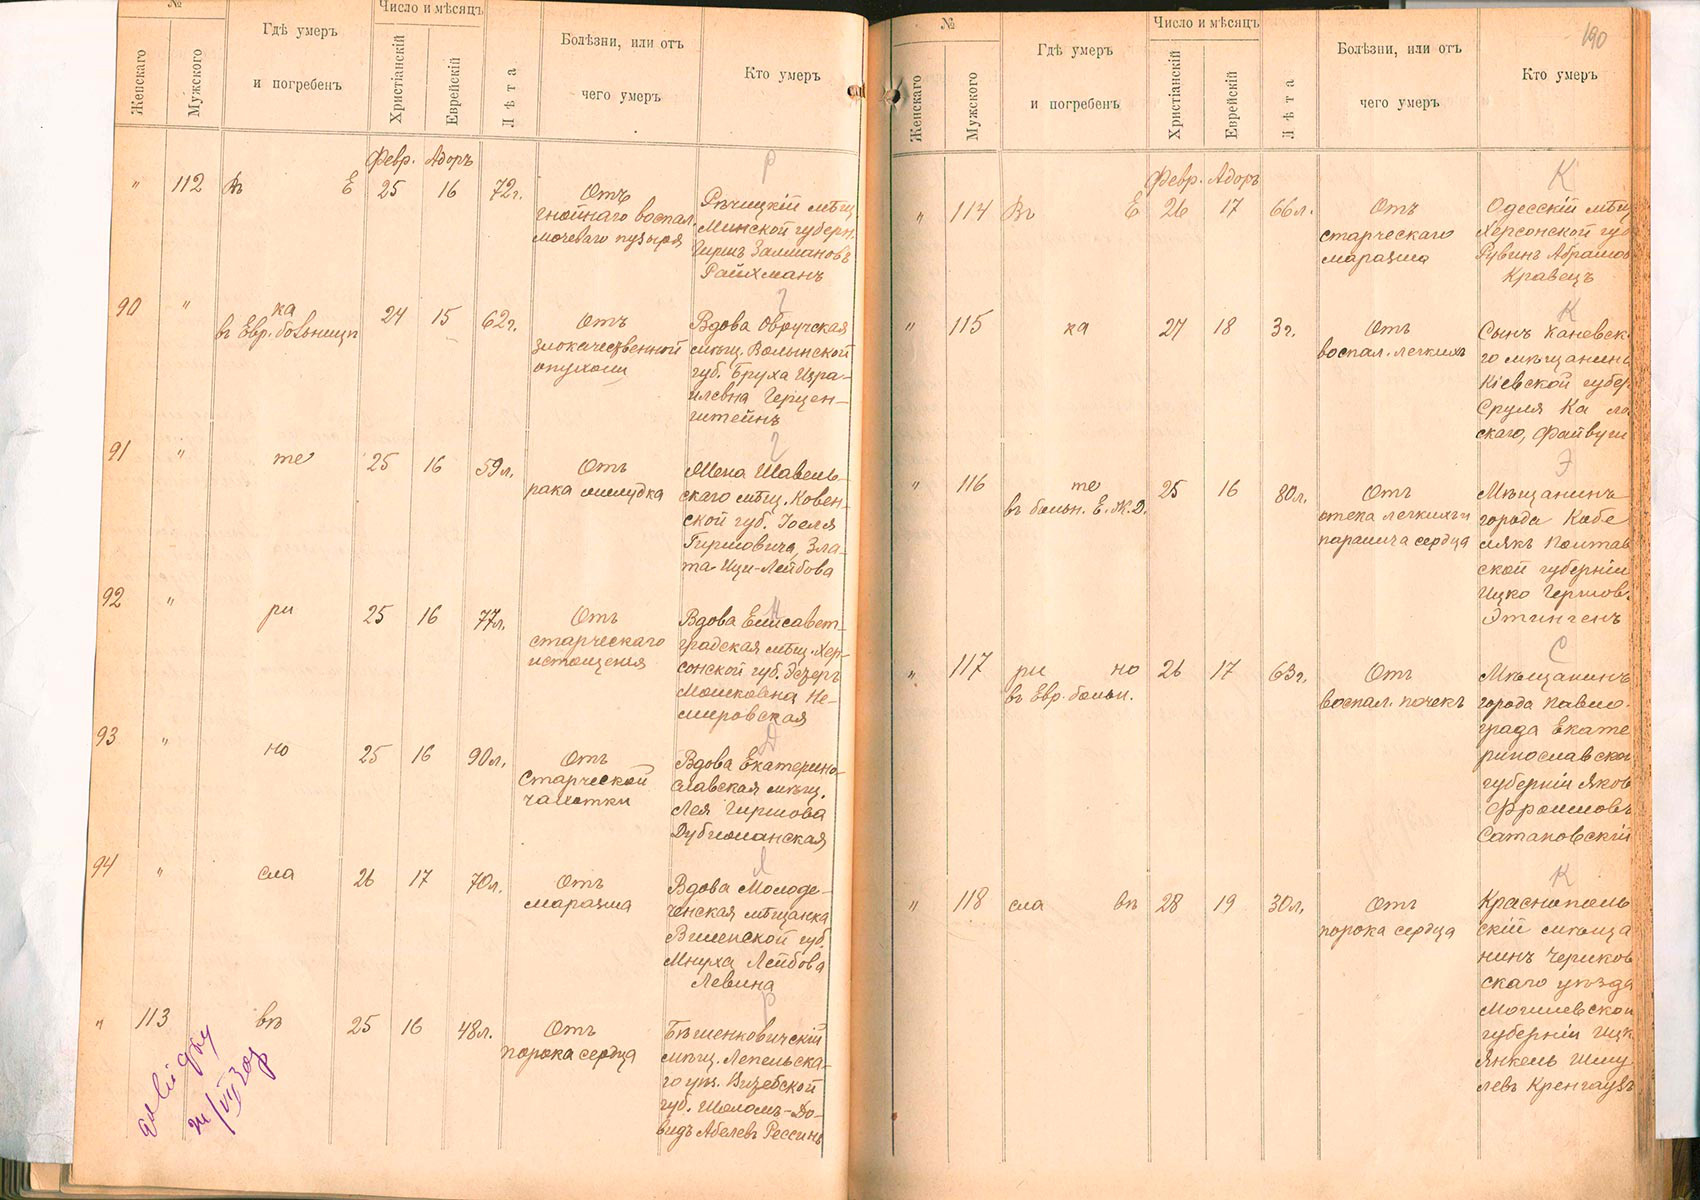 №
Число и мѣсяцъ
Женскаго
Мужского
Гдѣ умеръ
и погребенъ
Христіанскій
Еврейскій
Лѣта
Болѣзни, или отъ
чего умеръ
Кто умеръ
Февр. Адоръ
Р
" 112 Въ Е 25 16 72г.
Отъ
гнойнаго воспал.
мочеваго пузыря
Рѣчицкій мѣщ.
Минской губерн.
Гиршъ Залмановъ
Райхманъ
Г
90 "
ка
въ Евр. больницѣ
24 15 62г.
Отъ
злокачественной
опухоли
Вдова Овручская
мѣщ. Волынской
губ. Бруха Изра-
илевна Герцен-
штейнъ
Г
91 " те 25 16 59л.
Отъ
рака желудка
Жена Шавель-
скаго мѣщ. Ковен-
ской губ. Іоселя
Гиршовича, Зла-
та Ици-Лейбова
Н
92 " ри 25 16 77л.
Отъ
старческаго
истощенія
Вдова Елисавет-
градская мѣщ. Хер-
сонской губ.
Мошковна Не-
мировская
Д
93 " но 25 16 90л.
Отъ
старческой
чахотки
Вдова Екатерино-
славская мѣщ.
Лея Гиршова
Дубношанская
Л
94 " сла 26 17 70л.
Отъ
маразма
Вдова Молоде-
ченская мѣщанка
Виленской губ.
Мнуха Лейбова
Левина
Р
" 113 въ 25 16 48л.
Отъ
порока сердца
Бѣшенковичскій
мѣщ. Лепельска-
го уѣз. Витебской
губ. Шоломъ-До-
видъ Абелевъ Рессинъ
№
Число и мѣсяцъ
190
Женскаго
Мужского
Гдѣ умеръ
и погребенъ
Христіанскій
Еврейскій
Лѣта
Болѣзни, или отъ
чего умеръ
Кто умеръ
Февр. Адоръ
К
" 114 Въ Е 26 17 66л.
Отъ
старческаго
маразма
Одесскій мѣщ
Херсонской губ
Рувинъ Абрамов
Кравецъ
К
" 115 ка 27 18 3г.
Отъ
воспал. легкихъ
Сынъ Каневск-
го мѣщанина
Кіевской губер
Сруля Ка
скаго, Файвуш
Э
" 116
те
въ больн. Е.Ж.Д.
25 16 80л.
Отъ
отека легкихъ и
паралича сердца
Мѣщанинъ
города Кобе
лякъ Полтав
ской губерніи
Ицко Гершов.
Этингенъ
С
" 117 ри но
въ Евр. больн.
26 17 63г.
Отъ
воспал. почекъ
Мѣщанинъ
города Павло-
града Екате
ринославской
губерніи Яков
Фроимовъ
Сатановскій
К
" 118 сла въ 28 19 30л.
Отъ
порока сердца
Краснополь
скій мѣща
нинъ Чериков
скаго уѣзда
Могилевской
губерніи Ицк
Янкель Шму
левъ Кренгаузъ